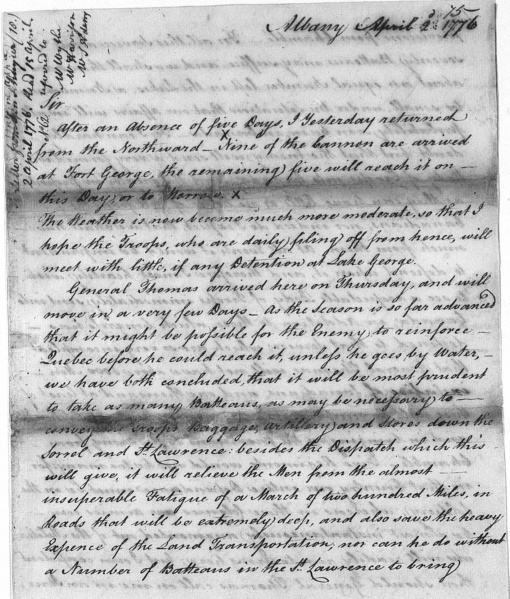 75
Albany April 2d 1776
2 April 1776. Read 15 April.
referred to
Mr Wythe
Mr Harrison
Mr
Sir
After an Absence of five Days, I Yesterday returned
from the Northward – Nine of the Cannon are arrived
at Fort George, the remaining five will reach it on –
this Day or to Morrow. x
The Weather is now become much more moderate, so that I
hope the Troops, who are daily filing off from hence, will
meet with little, if any Detention at Lake George.
General Thomas arrived here on Thursday, and will
move in a very few Days – As the Season is so far advanced
that it might be possible for the Enemy to reinforce –
Quebec before he could reach it, unless he goes by Water, –
we have both concluded, that it will be most prudent
to take as many Batteaus, as may be necessary to –
convey his Troops Baggage, Artillery and Stores down the
Sorrol and St. Lawrence: besides the Dispatch which this
will give, it will relieve the Men from the almost –
insuperable Fatigue of a March of two hundred Miles, in
Roads that will be extremely deep, and also save the heavy
Expence of the Land Transportation, nor can he do without
a Number of Batteaus in the St. Lawrence to bring